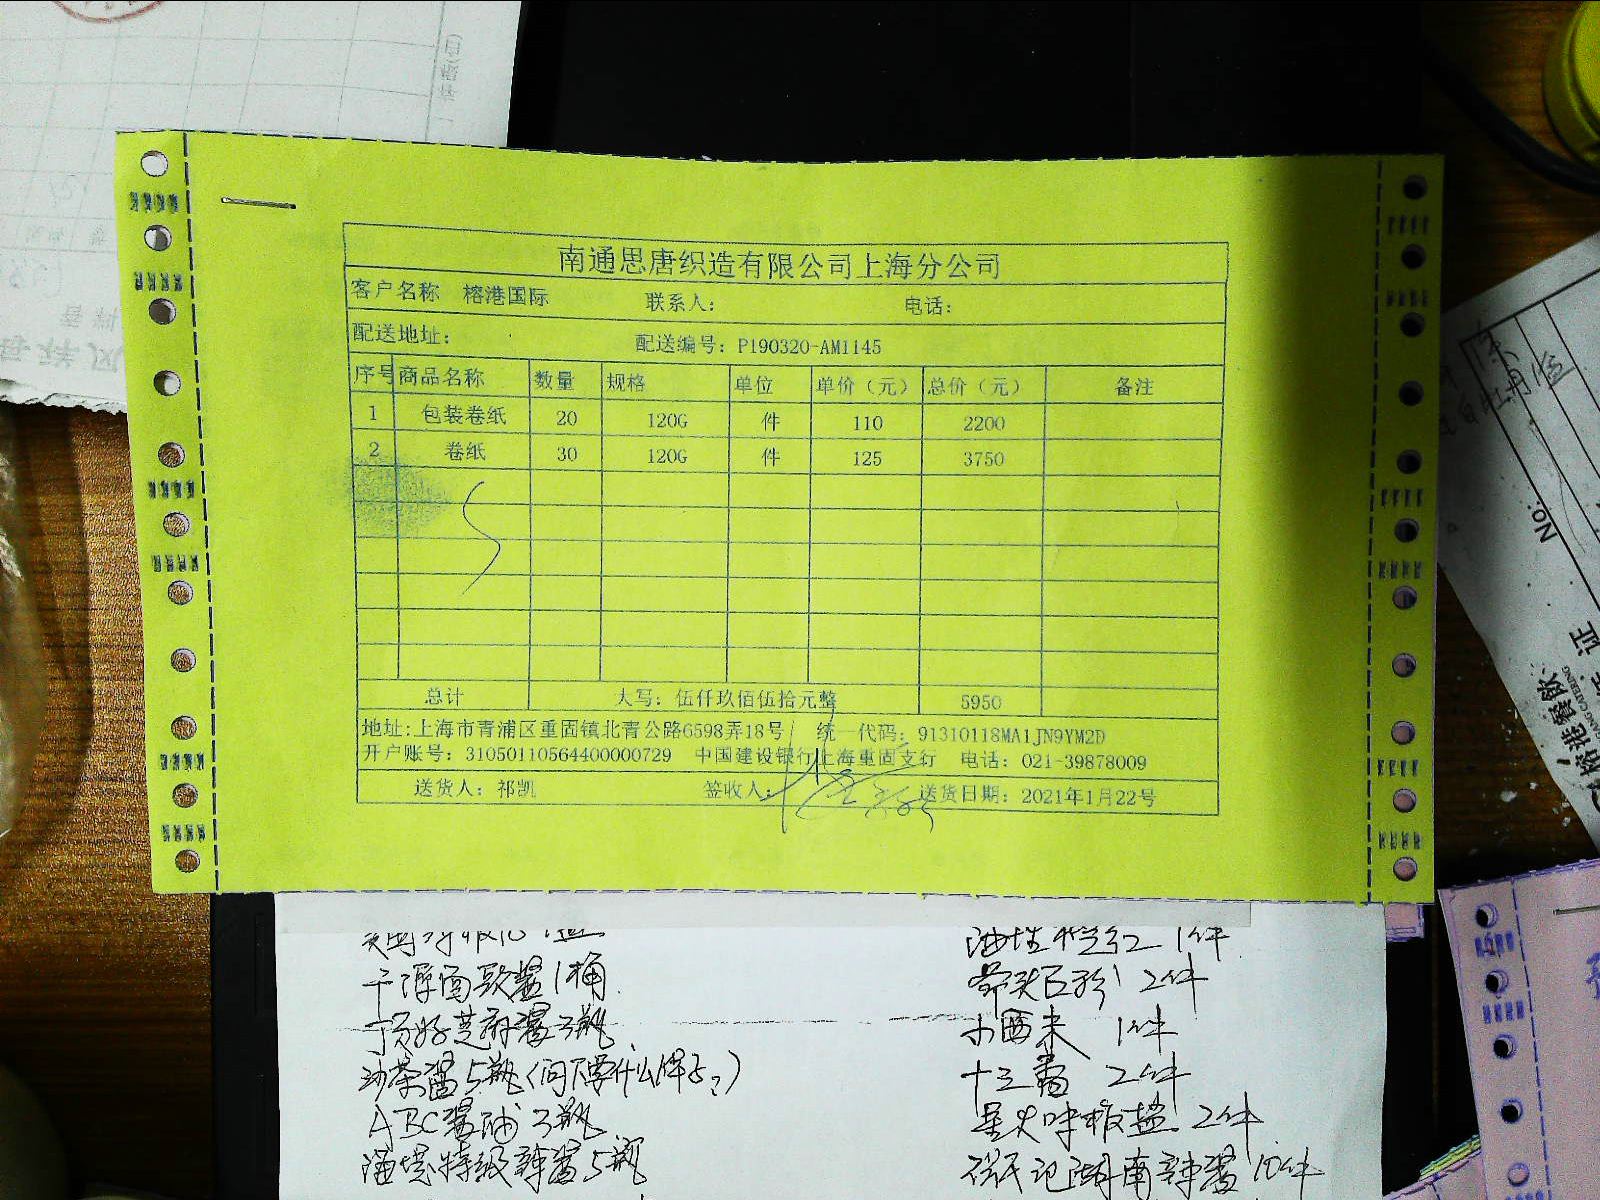 南通思唐织造有限公司上海分公司
客户名称 榕港国际 联系人: 电话:
配送地址: 配送编号: P190320-AM1145
序号 商品名称 数量 规格 单位 单价（元） 总价（元） 备注
1 包装卷纸 20 120G 件 110 2200
2 卷纸 30 120G 件 125 3750
总计 大写: 伍仟玖佰伍拾元整 5950
地址:上海市青浦区重固镇北青公路6598弄18号 统一代码: 91310118MA1JN9YM2D
开户账号: 31050110564400000729 中国建设银行上海重固支行 电话: 021-39878009
送货人: 祁凯 签收人: 送货日期: 2021年1月22号
1件
1桶 2件
3瓶 小西米 1件
沙茶酱5瓶 十三香 2件
ABC酱油3瓶 2件
特级辣酱5瓶 湖南辣酱10件
No:
证
榕港餐饮